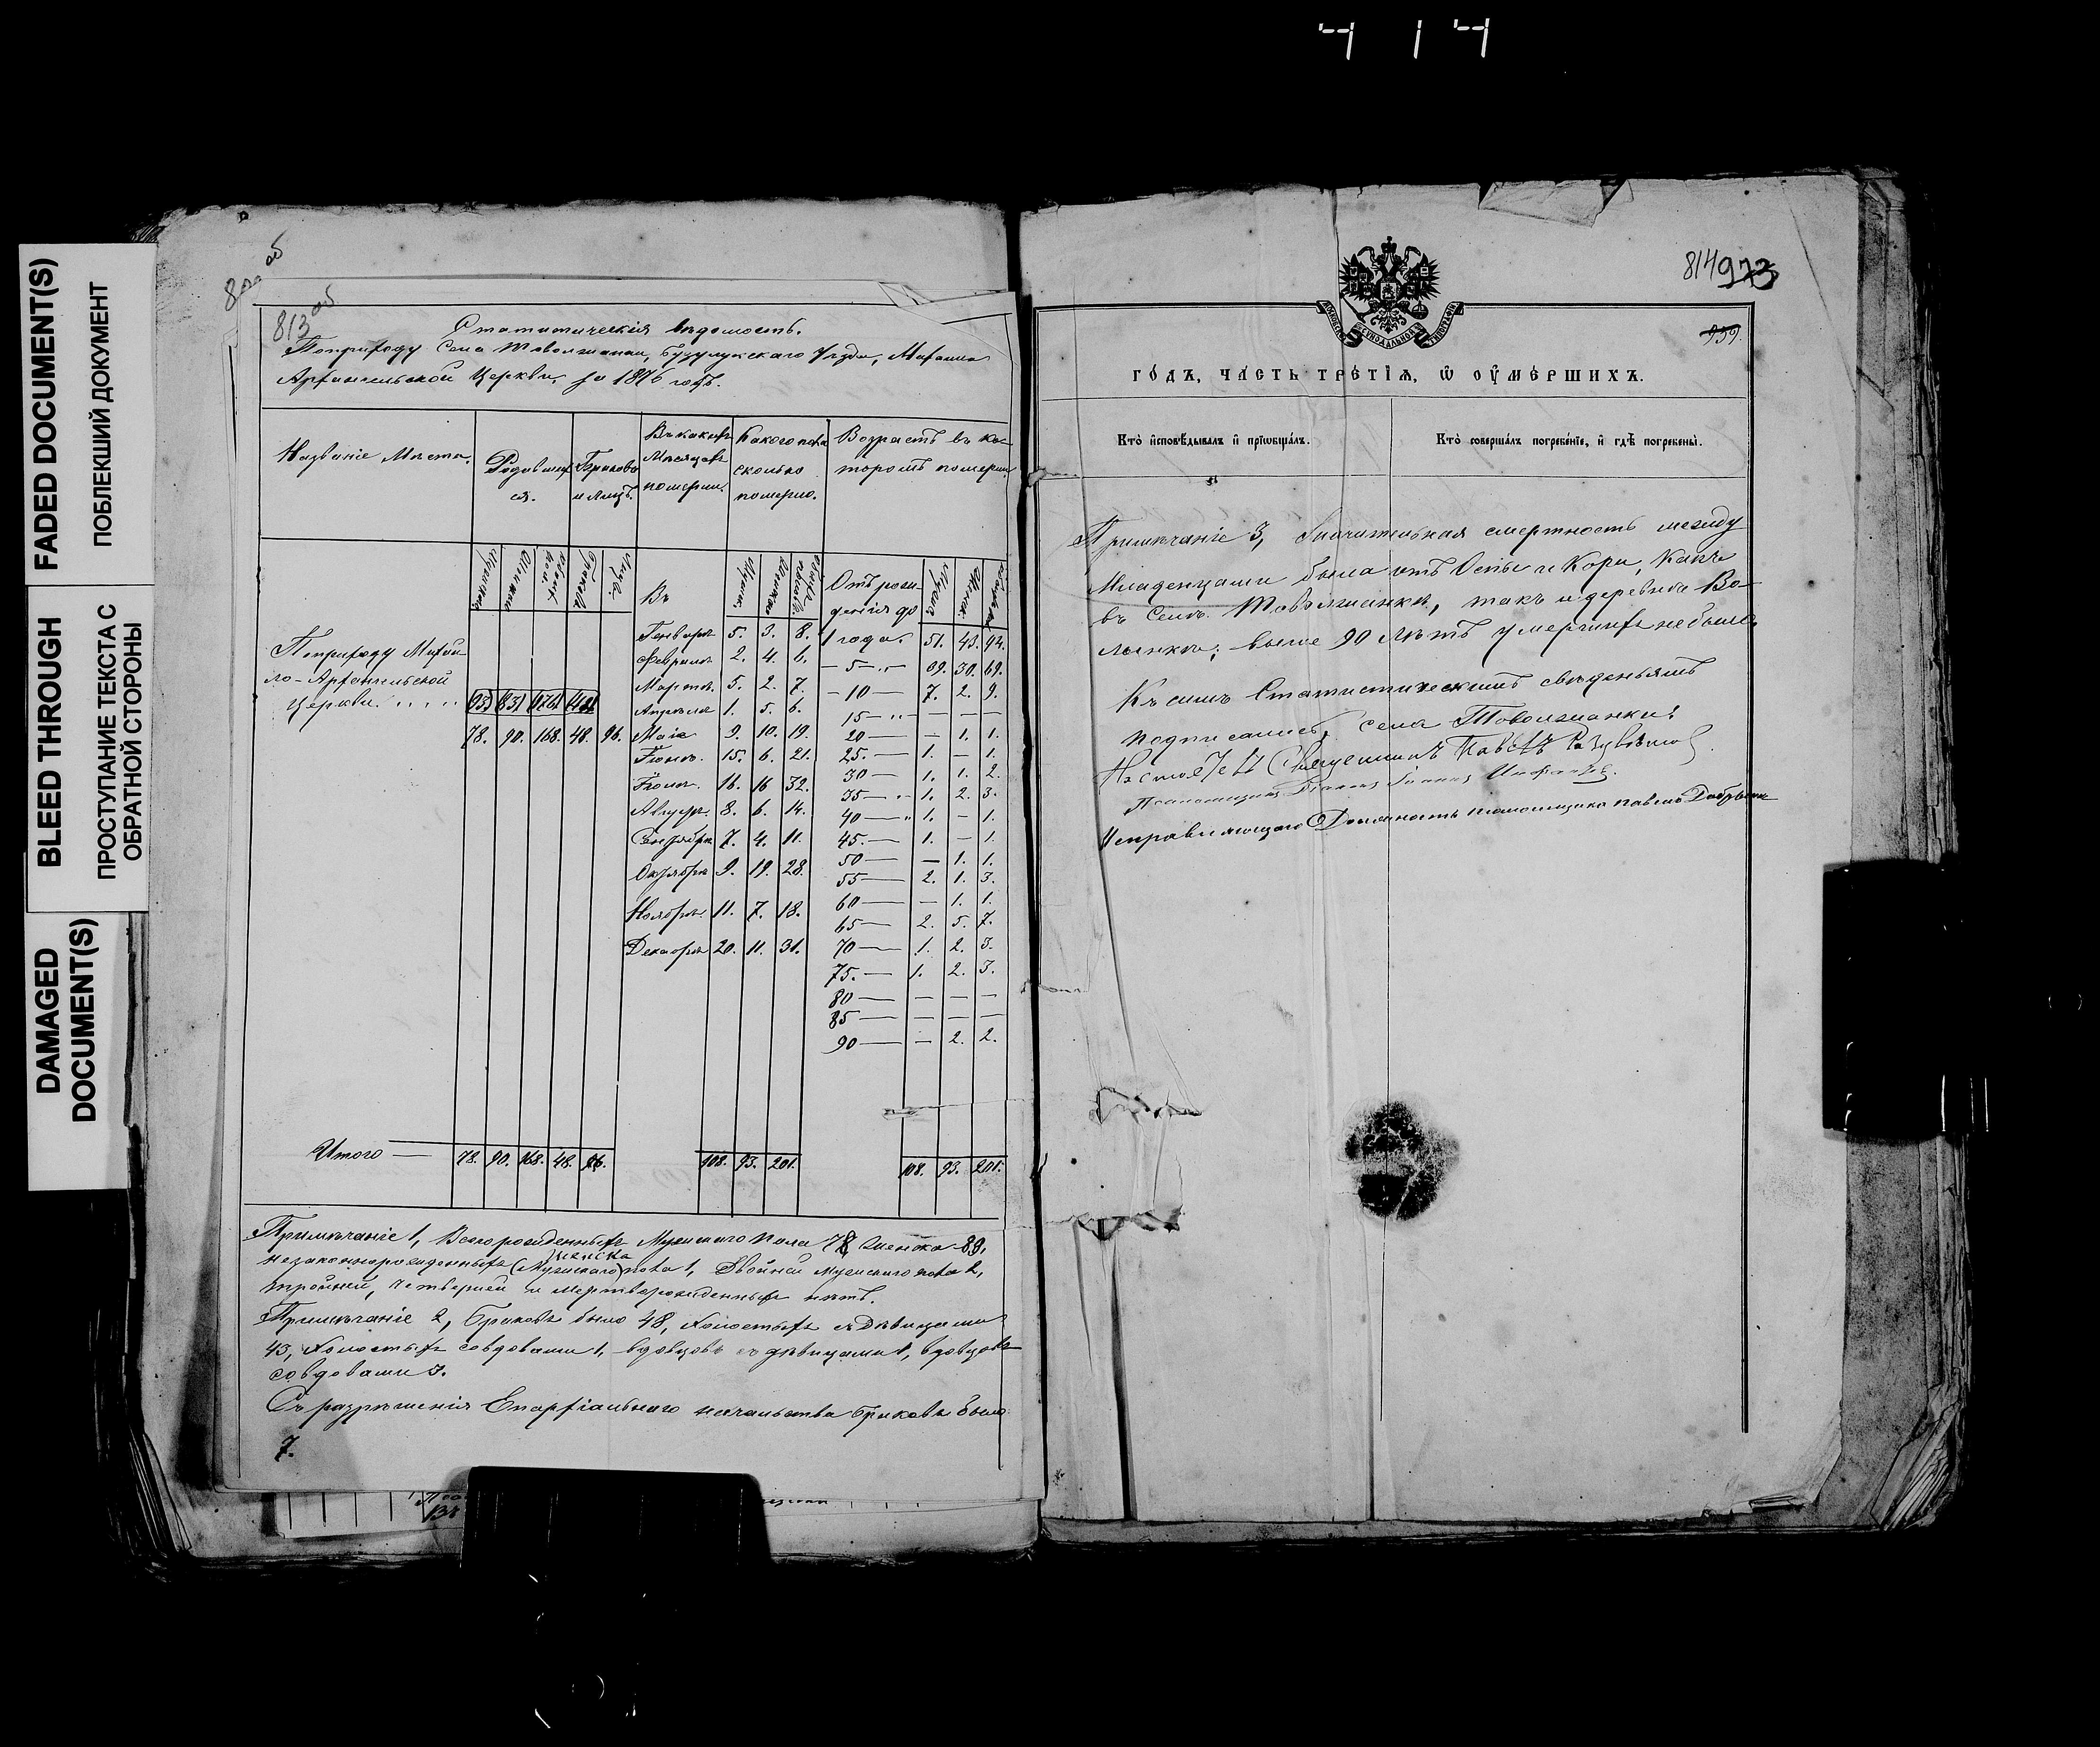 414
FADED DOCUMENT(S)
ПОБЛЕКШИЙ ДОКУМЕНТ
BLEED THROUGH
ПРОСТУПАНИЕ ТЕКСТА С
ОБРАТНОЙ СТОРОНЫ
DAMAGED
DOCUMENT(S)
813 об
Статитическія вѣдомость.
По приходу Села Таволжанки, Бузулукскаго Уѣзда, Михаило
Архангельской Церкви, за 1876 годъ.
Названіе Мѣста.
Родившихся.
Браковъ и лицъ.
Въ какихъ Мѣсяцахъ померши.
Какого пола сколько померло.
Возрастъ въ которомъ померши.
Мужска Женска обоих пола Браковъ Лицъ.
Въ
Отъ рожденія до
По приходу Михаило-Архангельской Церкви
78. 90. 168. 48. 96.
Генваръ 5. 3. 8.
Февраль 2. 4. 6.
Мартъ 5. 2. 7.
Апрѣль 1. 5. 6.
Маіѣ 9. 10. 19.
Іюнь. 15. 6. 21.
Іюль 16. 16 32.
Августъ 8. 6. 14.
Сентябрь 7. 4. 11.
Октябрь 9. 19. 28.
Ноябрь 11. 7. 18.
Декабрь 20. 11. 31.
1 года. 51. 43. 94.
5 39. 30. 69.
10 7. 2. 9.
15 — — —
20 — 1. 1.
25. 1. — 1.
30 1. 1. 2.
35 1. 2. 3.
40 1. — 1.
45. 1. — 1.
50 — 1. 1.
55 2. 1. 3.
60 — 1. 1.
65 2. 5. 7.
70 1. 2. 3.
75. 1. 2. 3.
80 — — —
85 — — —
90 — 2. 2.
Итого — 78. 90. 168. 48. 96. 108. 93. 201. 108. 93. 201.
Примѣчаніе 1, Всего рожденныхъ Мужскаго пола 78, Женска 89,
женска
незаконнорожденныхъ (Мужскаго) пола 1, Двойни мужскаго пола 2,
тройней, четверней и мертворожденныхъ нѣтъ.
Примѣчаніе 2, Браковъ было 48, Холостыхъ съ Дѣвицами
43, Холостыхъ со вдовами 1, вдовцовъ съ дѣвицами 1, вдовцовъ
со вдовами 3.
Съ разрѣшенія Епархіальнаго начальства браковъ было
7.
814 973
939.
ГО́ДЪ, ЧАСТЬ ТРЕ́ТІѦ, Ѿ ОУМЕ́РШИХЪ.
Кто̀ и҆сповѣ́дывалъ и҆ прїѡбща́лъ.
Кто̀ соверша́лъ погребе́нїе, и҆ гдѣ̀ погребены̀.
Примѣчаніе 3, Значительная смертность между
Младенцами была отъ Оспы и Кори, какъ
въ Селѣ Таволжанки, такъ и деревнѣ Во-
лынкѣ; выше 90 лѣтъ умершихъ не было.
Къ симъ Статистическимъ свѣденьямъ
подписались села Таволжанки
Настоятель Священникъ Павелъ
Псаломщикъ
Исправляющаго Должность псаломщика Павелъ